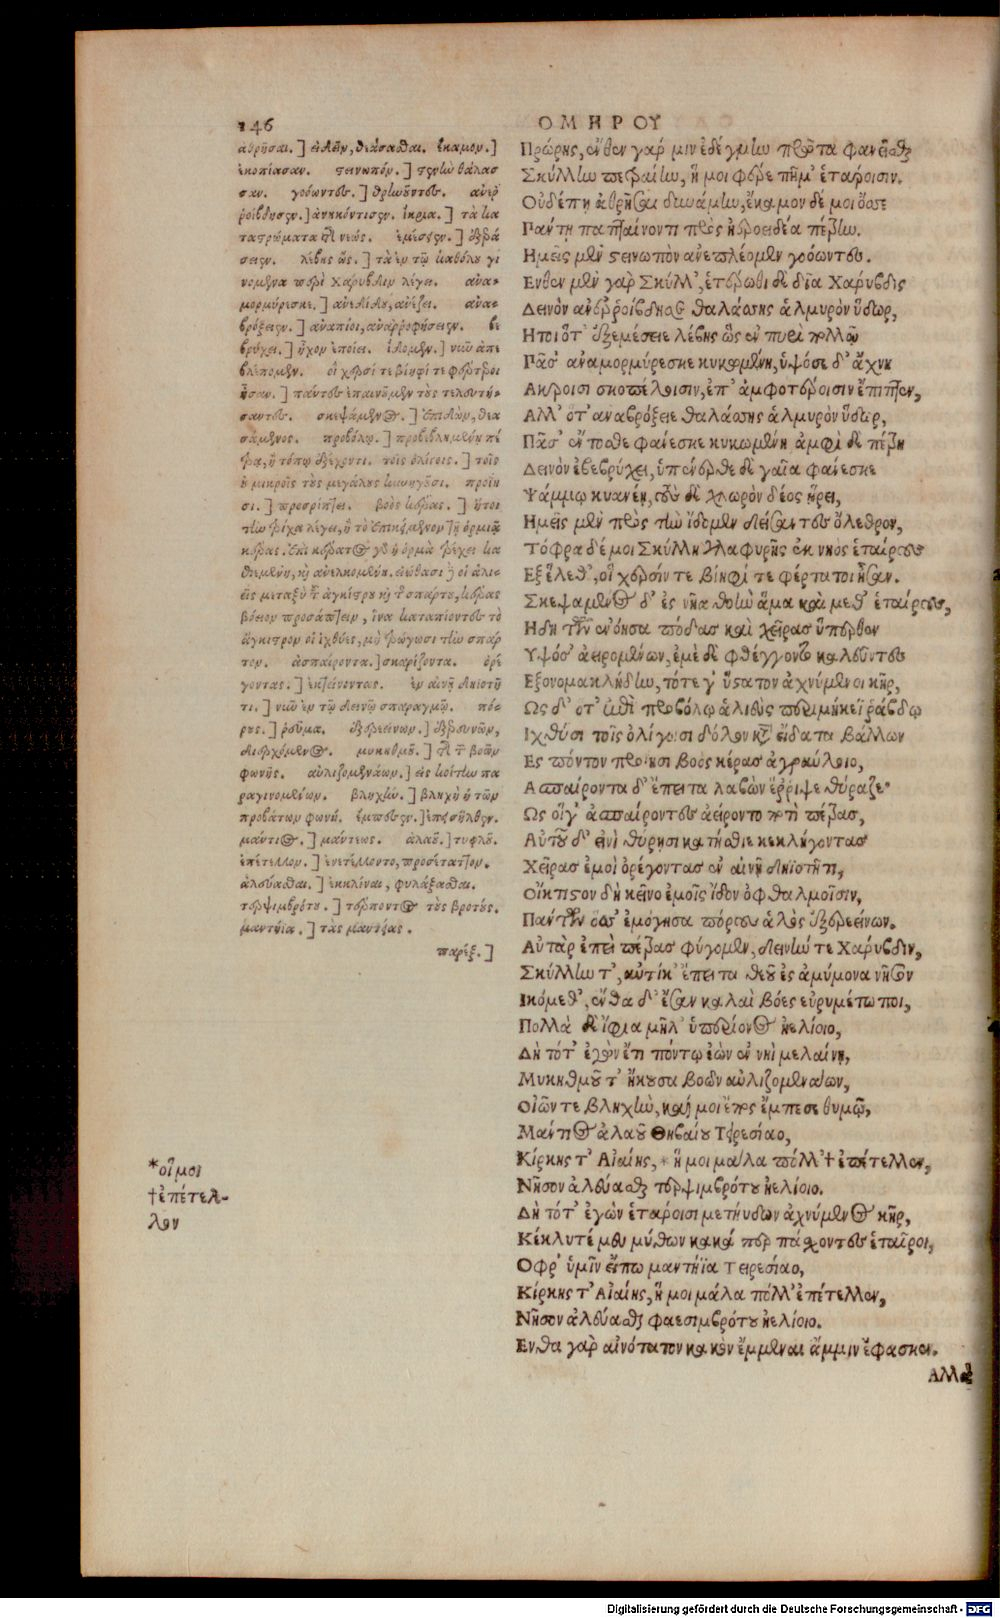 146
ΟΜΗΡΟΥ
ἀθρῆσαι.] ἰδεῖν, θεάσασθαι. ἔκαμον.]
ἐκοπίασαν. στεινωπόν.] στενὴν θάλασ
σαν. γοόωντες.] θρηνοῦντες. ἀνερ
ροίβδησεν.] ἀνηκόντισεν. ἴκρια.] τὰ κα
ταστρώματα τῆς νεώς. ἐμέσειεν.] ἐξερά
σειεν. λέβης ὥς.] τὰ ἐν τῷ καθόλου γι
νομενα περὶ Χάρυβδιν λέγει. ἀνα-
μορμύρεσκε.] ἀνεδίδου, ἀνέζει. ἀνα-
βρόξειεν.] ἀναπίοι, ἀναρροφήσειεν. βε
βρύχει.] ἦχον ἐποίει. ἴδομεν.] νῦν ἀπε
βλέπομεν. οἳ χερσί τε βίηφί τε φέρτεροι
ἦσαν.] πάντες ἐπαινοῦμεν τοὺς τελευτή-
σαντας. σκεψάμενος.] ἐπιδὼν, θεα
σάμενος. προβόλῳ.] προβεβλημένῃ πέ
τρᾳ, ἢ τόπῳ ἐξέχοντι. τοῖς ὀλίγοις.] τοῖς
μικροῖς τοὺς μεγάλους κυνηγοῦσι. προΐη
σι.] προσρίπτει. βοὸς κέρας.] ἤτοι
τὴν τρίχα λέγει, ἢ τὸ ἐπικείμενον τῇ ὁρμιᾷ
κέρας. ἐπὶ κέρατος γὰρ ἡ ὁρμιὰ τρέχει κα
θιεμένη, καὶ ἀνελκομένη. εἰώθασι γὰρ οἱ ἁλι-
εῖς μεταξὺ τοῦ ἀγκίστρου καὶ τοῦ σπάρτου, κέρας
βόειον προσάπτειν, ἵνα καταπίοντες τὸ
ἄγκιστρον οἱ ἰχθύες, μὴ τρώγωσι τὴν σπάρ
τον. ἀσπαίροντα.] σκαρίζοντα. ὀρέ
γοντας.] ἐκτείνοντας. ἐν αἰνῇ δηϊοτῆ
τι.] νῦν ἐν τῷ δεινῷ σπαραγμῷ. πό-
ρους.] ῥεῦμα. ἐξερεείνων.] ἐξερευνῶν,
διερχόμενος. μυκηθμοῦ.] τῆς τῶν βοῶν
φωνῆς. αὐλιζομενάων.] εἰς κοίτην πα
ραγινομένων. βληχήν.] βληχὴ ἡ τῶν
προβάτων φωνή. ἔμπεσεν.] ἐπεισῆλθεν.
μάντις.] μάντεως. ἀλαοῦ.] τυφλοῦ.
ἐπέτελλον.] ἐνετέλλοντο, προσέταττον.
ἀλεύασθαι.] ἐκκλῖναι, φυλάξασθαι.
τερψιμβρότου.] τέρποντος τοὺς βροτούς.
μαντήϊα.] τὰς μαντείας.
παρέξ.]
Πρώρης, ἔνθεν γάρ μιν ἐδέγμην πρῶτα φανεῖσθαι
Σκύλλην πετραίην, ἥ μοι φέρε πῆμ' ἑτάροισιν.
Οὐδέ πη ἀθρῆσαι δυνάμην, ἔκαμον δέ μοι ὄσσε
Πάντη παπταίνοντι πρὸς ἠεροειδέα πέτρην.
Ημεῖς μὲν στεινωπὸν ἀνεπλέομεν γοόωντες.
Ενθεν μὲν γὰρ Σκύλλ', ἑτέρωθι δὲ δῖα Χάρυβδις
Δεινὸν ἀνερροίβδησε θαλάσσης ἁλμυρὸν ὕδωρ,
Ητοι ὅτ' ἐξεμέσειε λέβης ὣς ἐν πυρὶ πολλῷ
Πᾶσ' ἀναμορμύρεσκε κυκωμένη, ὑψόσε δ' ἄχνη
Ακροισι σκοπέλοισιν, ἐπ' ἀμφοτέροισιν ἔπιπτεν,
Αλλ' ὅτ' ἀναβρόξειε θαλάσσης ἁλμυρὸν ὕδωρ,
Πᾶσ' ἔντοσθε φάνεσκε κυκωμένη ἀμφὶ δὲ πέτρη
Δεινὸν ἐβεβρύχει, ὑπένερθε δὲ γαῖα φάνεσκε
Ψάμμῳ κυανέη, τοὺς δὲ χλωρὸν δέος ᾕρει,
Ημεῖς μὲν πρὸς τὴν ἴδομεν δείσαντες ὄλεθρον,
Τόφρα δέ μοι Σκύλλη γλαφυρῆς ἐκ νηὸς ἑταίρους
Εξ ἕλεθ', οἳ χερσίν τε βίηφί τε φέρτατοι ἦσαν.
Σκεψάμενος δ' ἐς νῆα θοὴν ἅμα καὶ μεθ' ἑταίρους,
Ηδη τῶν ἐνόησα πόδας καὶ χεῖρας ὕπερθεν
Υψόσ' ἀειρομένων, ἐμὲ δὲ φθέγγοντο καλεῦντες
Εξονομακλήδην, τότε γ' ὕστατον ἀχνύμενοι κῆρ,
Ως δ' ὅτ' ἐπὶ προβόλῳ ἁλιεὺς περιμήκεϊ ῥάβδῳ
Ιχθύσι τοῖς ὀλίγοισι δόλον κατὰ εἴδατα βάλλων
Ες πόντον προΐησι βοὸς κέρας ἀγραύλοιο,
Ασπαίροντα δ' ἔπειτα λαβὼν ἔρριψε θύραζε·
Ως οἵγ' ἀσπαίροντες ἀείροντο προτὶ πέτρας,
Αὐτοῦ δ' εἰνὶ θύρῃσι κατήσθιε κεκλήγοντας
Χεῖρας ἐμοὶ ὀρέγοντας ἐν αἰνῇ δηϊοτῆτι,
Οἴκτιστον δὴ κεῖνο ἐμοῖς ἴδον ὀφθαλμοῖσιν,
Πάντων ὅσσ' ἐμόγησα πόρους ἁλὸς ἐξερεείνων.
Αὐτὰρ ἐπεὶ πέτρας φύγομεν, δεινήν τε Χάρυβδιν,
Σκύλλην τ', αὐτίκ' ἔπειτα θεοῦ ἐς ἀμύμονα νῆσον
Ικόμεθ', ἔνθα δ' ἔσαν καλαὶ βόες εὐρυμέτωποι,
Πολλὰ δὲ ἴφια μῆλ' ὑπερίονος ἠελίοιο,
Δὴ τότ' ἐγὼν ἔτι πόντῳ ἐὼν ἐν νηῒ μελαίνῃ,
Μυκηθμοῦ τ' ἤκουσα βοῶν αὐλιζομενάων,
Οἰῶν τε βληχήν, καί μοι ἔπος ἔμπεσε θυμῷ,
Μάντιος ἀλαοῦ Θηβαίου Τειρεσίαο,
Κίρκης τ' Αἰαίης, *ἥ μοι μάλα πόλλ' †ἐπέτελλεν,
Νῆσον ἀλεύασθαι τερψιμβρότου ἠελίοιο.
Δὴ τότ' ἐγὼν ἑτάροισι μετηύδων ἀχνύμενος κῆρ,
Κέκλυτέ μευ μύθων κακά περ πάσχοντες ἑταῖροι,
Οφρ' ὑμῖν εἴπω μαντήϊα Τειρεσίαο,
Κίρκης τ' Αἰαίης, ἥ μοι μάλα πόλλ' ἐπέτελλεν,
Νῆσον ἀλεύασθαι φαεσιμβρότου ἠελίοιο.
Ενθα γὰρ αἰνότατον κακὸν ἔμμεναι ἄμμιν ἔφασκεν.
Αλλὰ
*οἵ μοι
†ἐπέτελ-
λον
Digitalisierung gefördert durch die Deutsche Forschungsgemeinschaft - DFG